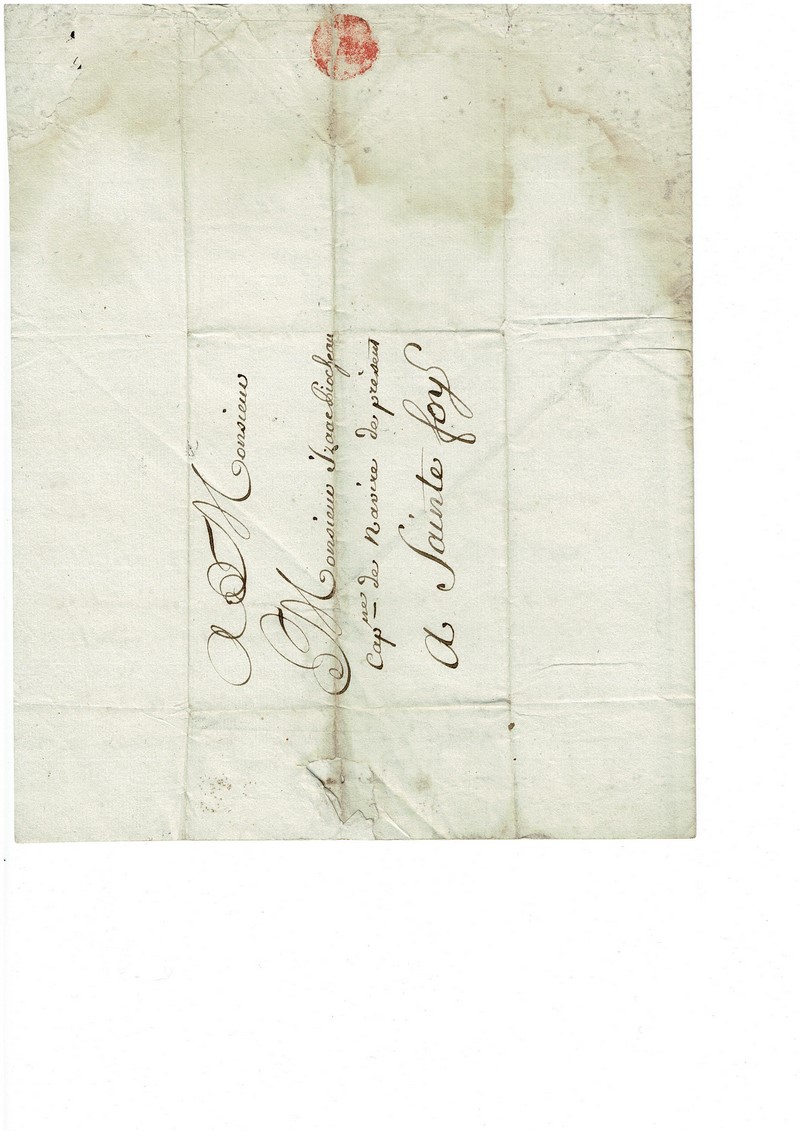 A Monsieur
Monsieur Izaac
Cap^ne de Navire de présent
A Sainte foy